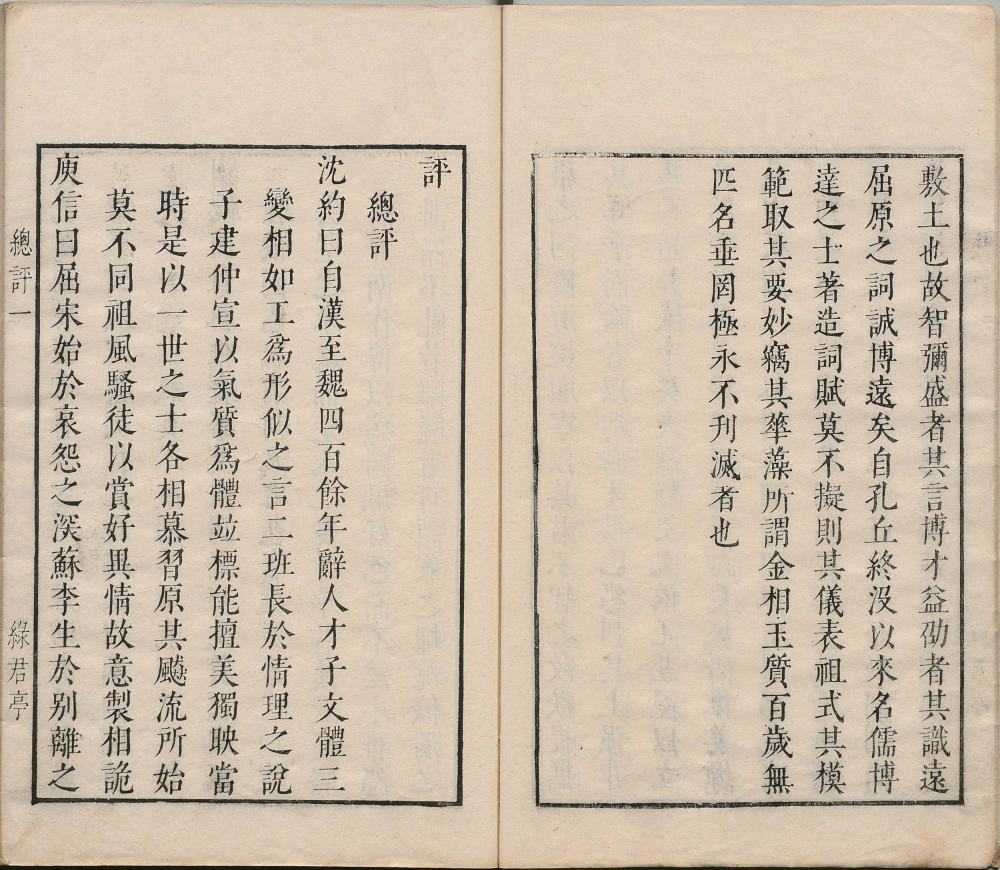 敷土也故智彌盛者其言博才益劭者其識遠
屈原之詞誠博遠矣自孔丘終没以來名儒博
達之士著造詞賦莫不擬則其儀表祖式其模
範取其要妙竊其華藻所謂金相玉質百歲無
匹名垂罔極永不刊滅者也
評
總評
沈約曰自漢至魏四百餘年辭人才子文體三
變相如工爲形似之言二班長於情理之說
子建仲宣以氣質爲體竝標能擅美獨映當
時是以一世之士各相慕習原其飈流所始
莫不同祖風騷徒以賞好異情故意製相詭
庾信曰屈宋始於哀怨之深蘇李生於别離之
總評一
綠君亭